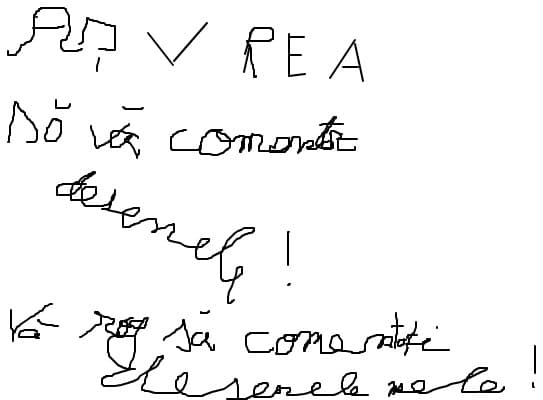 AȘ VREA
să vă comentați
desenele!
Vă rog să comentați
desenele mele!